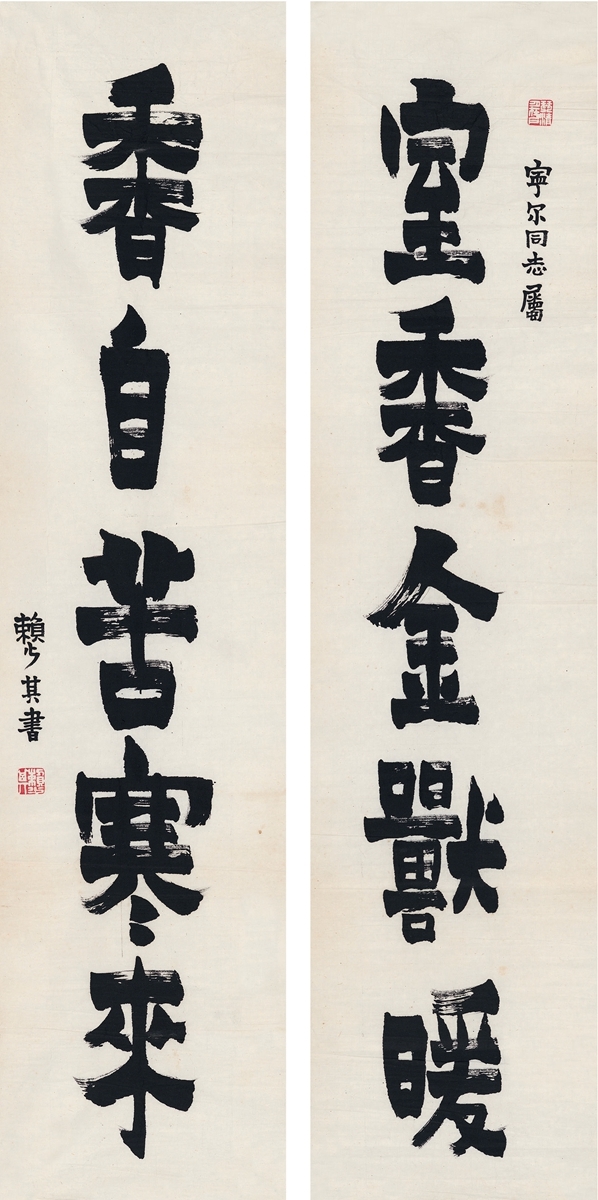 寧尔同志屬
室香金獸暖
香自苦寒來
賴少其書